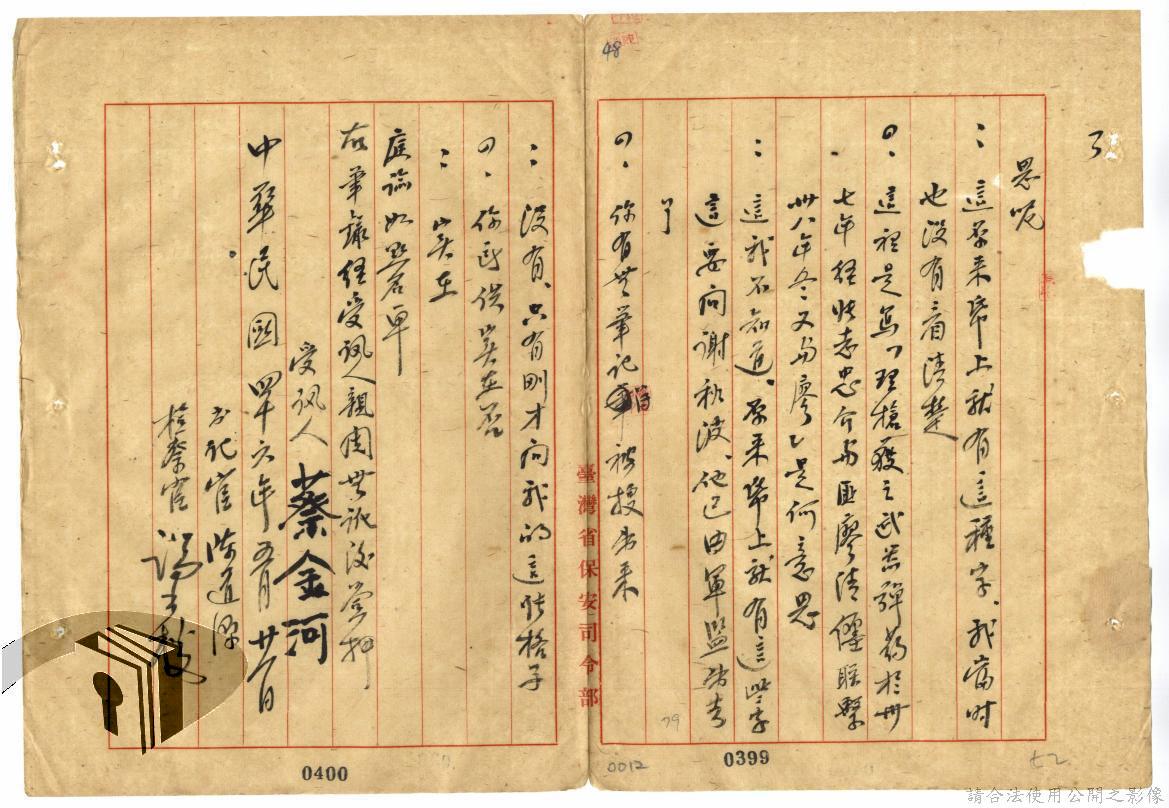 48
3
思呢
：這原來紙上就有這種字、我當時
也沒有看清楚
問、這裡是寫「理搶獲之武器彈葯於卅
七年經張志忠介與匪廖清纏聯繫
卅八年冬又與廖」是何意思
：這我不知道、原來紙上就有這些字
這要向謝秋波、他已由軍監出去
了
問、你有無筆記本被搜出來
：沒有、只有剛才向我的這張格子
問、你所供實在否
：實在
庭諭如點名單
右筆錄經受訊人親閱無訛後簽押
受訊人 蔡金河
中華民國四十六年五月廿 日
書記官 陳道
檢察官
臺灣省保安司令部
79
0012
0399
0400
七二
請合法使用公開之影像